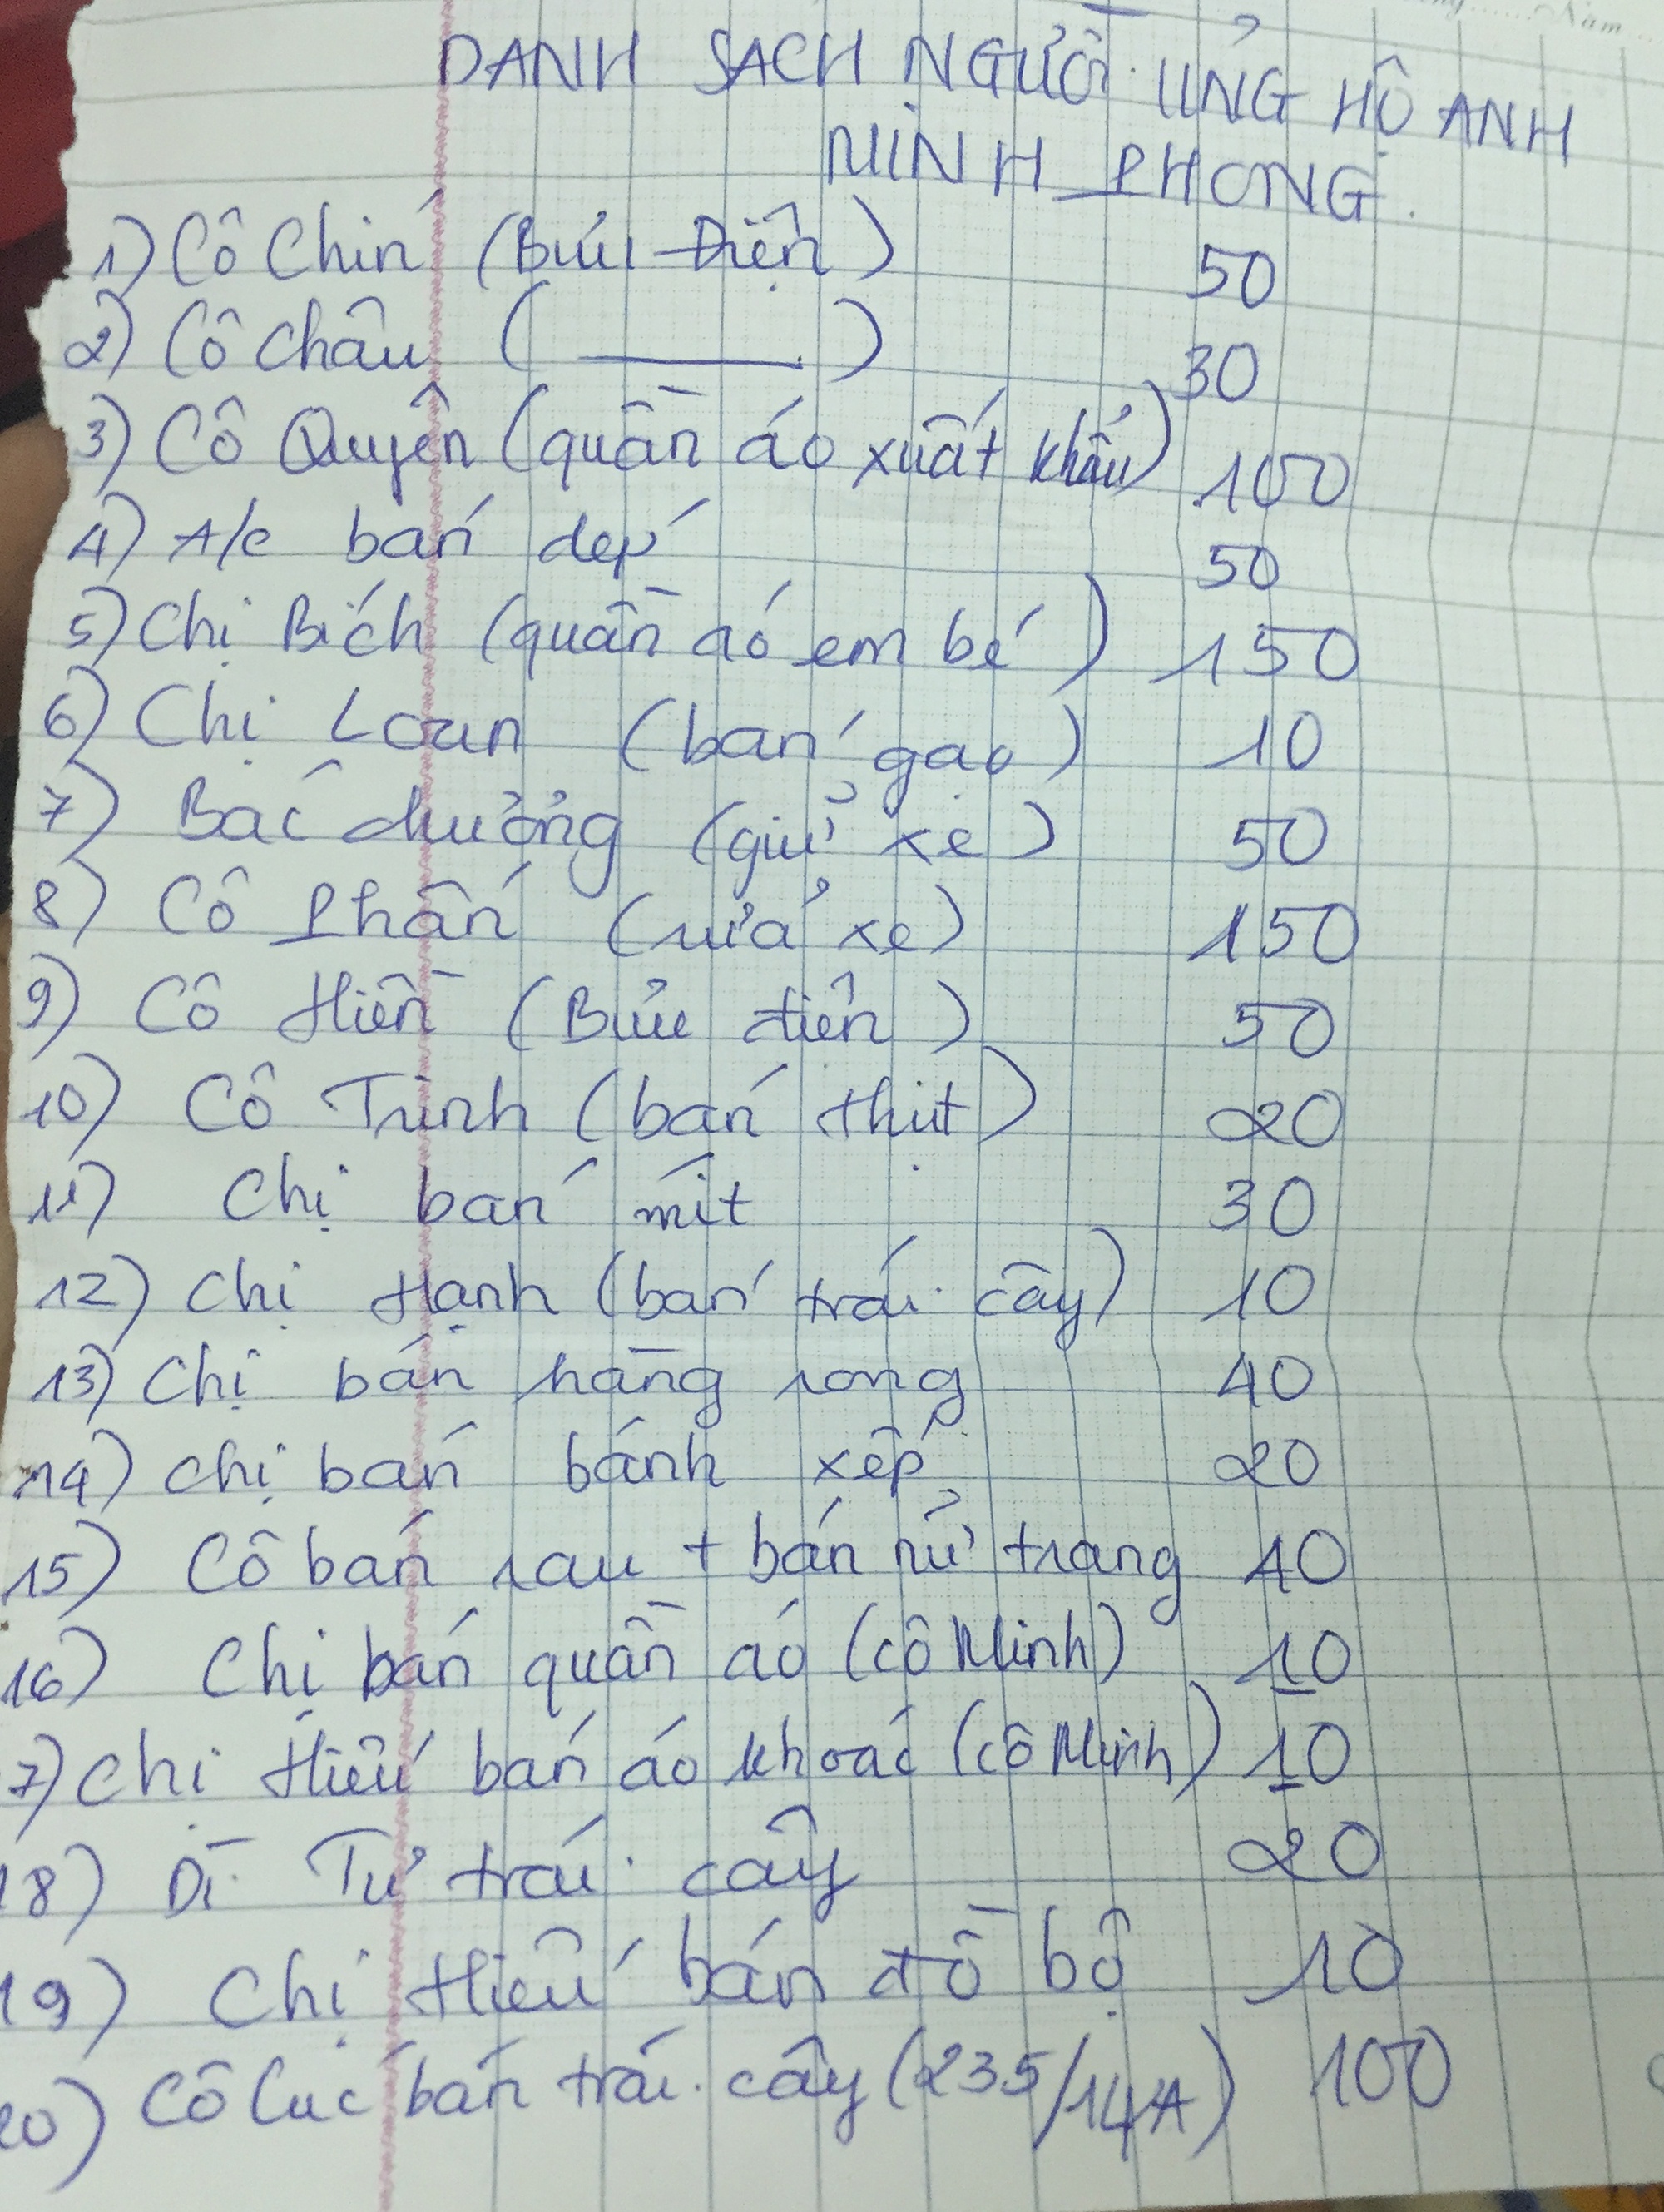 DANH SACH NGƯỜI ỦNG HỘ ANH
MINH PHONG
1) Cô Chín (Bửu Điện) 50
2) Cô Châu (———) 30
3) Cô Quyên (quần áo xuất khẩu) 100
4) A/c bán dép 50
5) Chị Bích (quần áo em bé) 150
6) Chị Loan (bán gạo) 10
7) Bác chưởng (giữ xe) 50
8) Cô Phấn (rửa xe) 150
9) Cô Hiền (Bửu điên) 50
10) Cô Trinh (bán thịt) 20
11) Chị bán mít 30
12) Chị Hạnh (bán trái cây) 10
13) Chị bán hàng rong 40
14) chị bán bánh xếp 20
15) Cô bán rau + bán nử trang 40
16) Chị bán quần áo (cô Minh) 10
7) Chị Hiếu bán áo khoác (cô Minh) 10
18) Dì Tư trái cây 20
19) Chị Hiếu bán đồ bộ 10
20) Cô Cúc bán trái cây (235/14A) 100